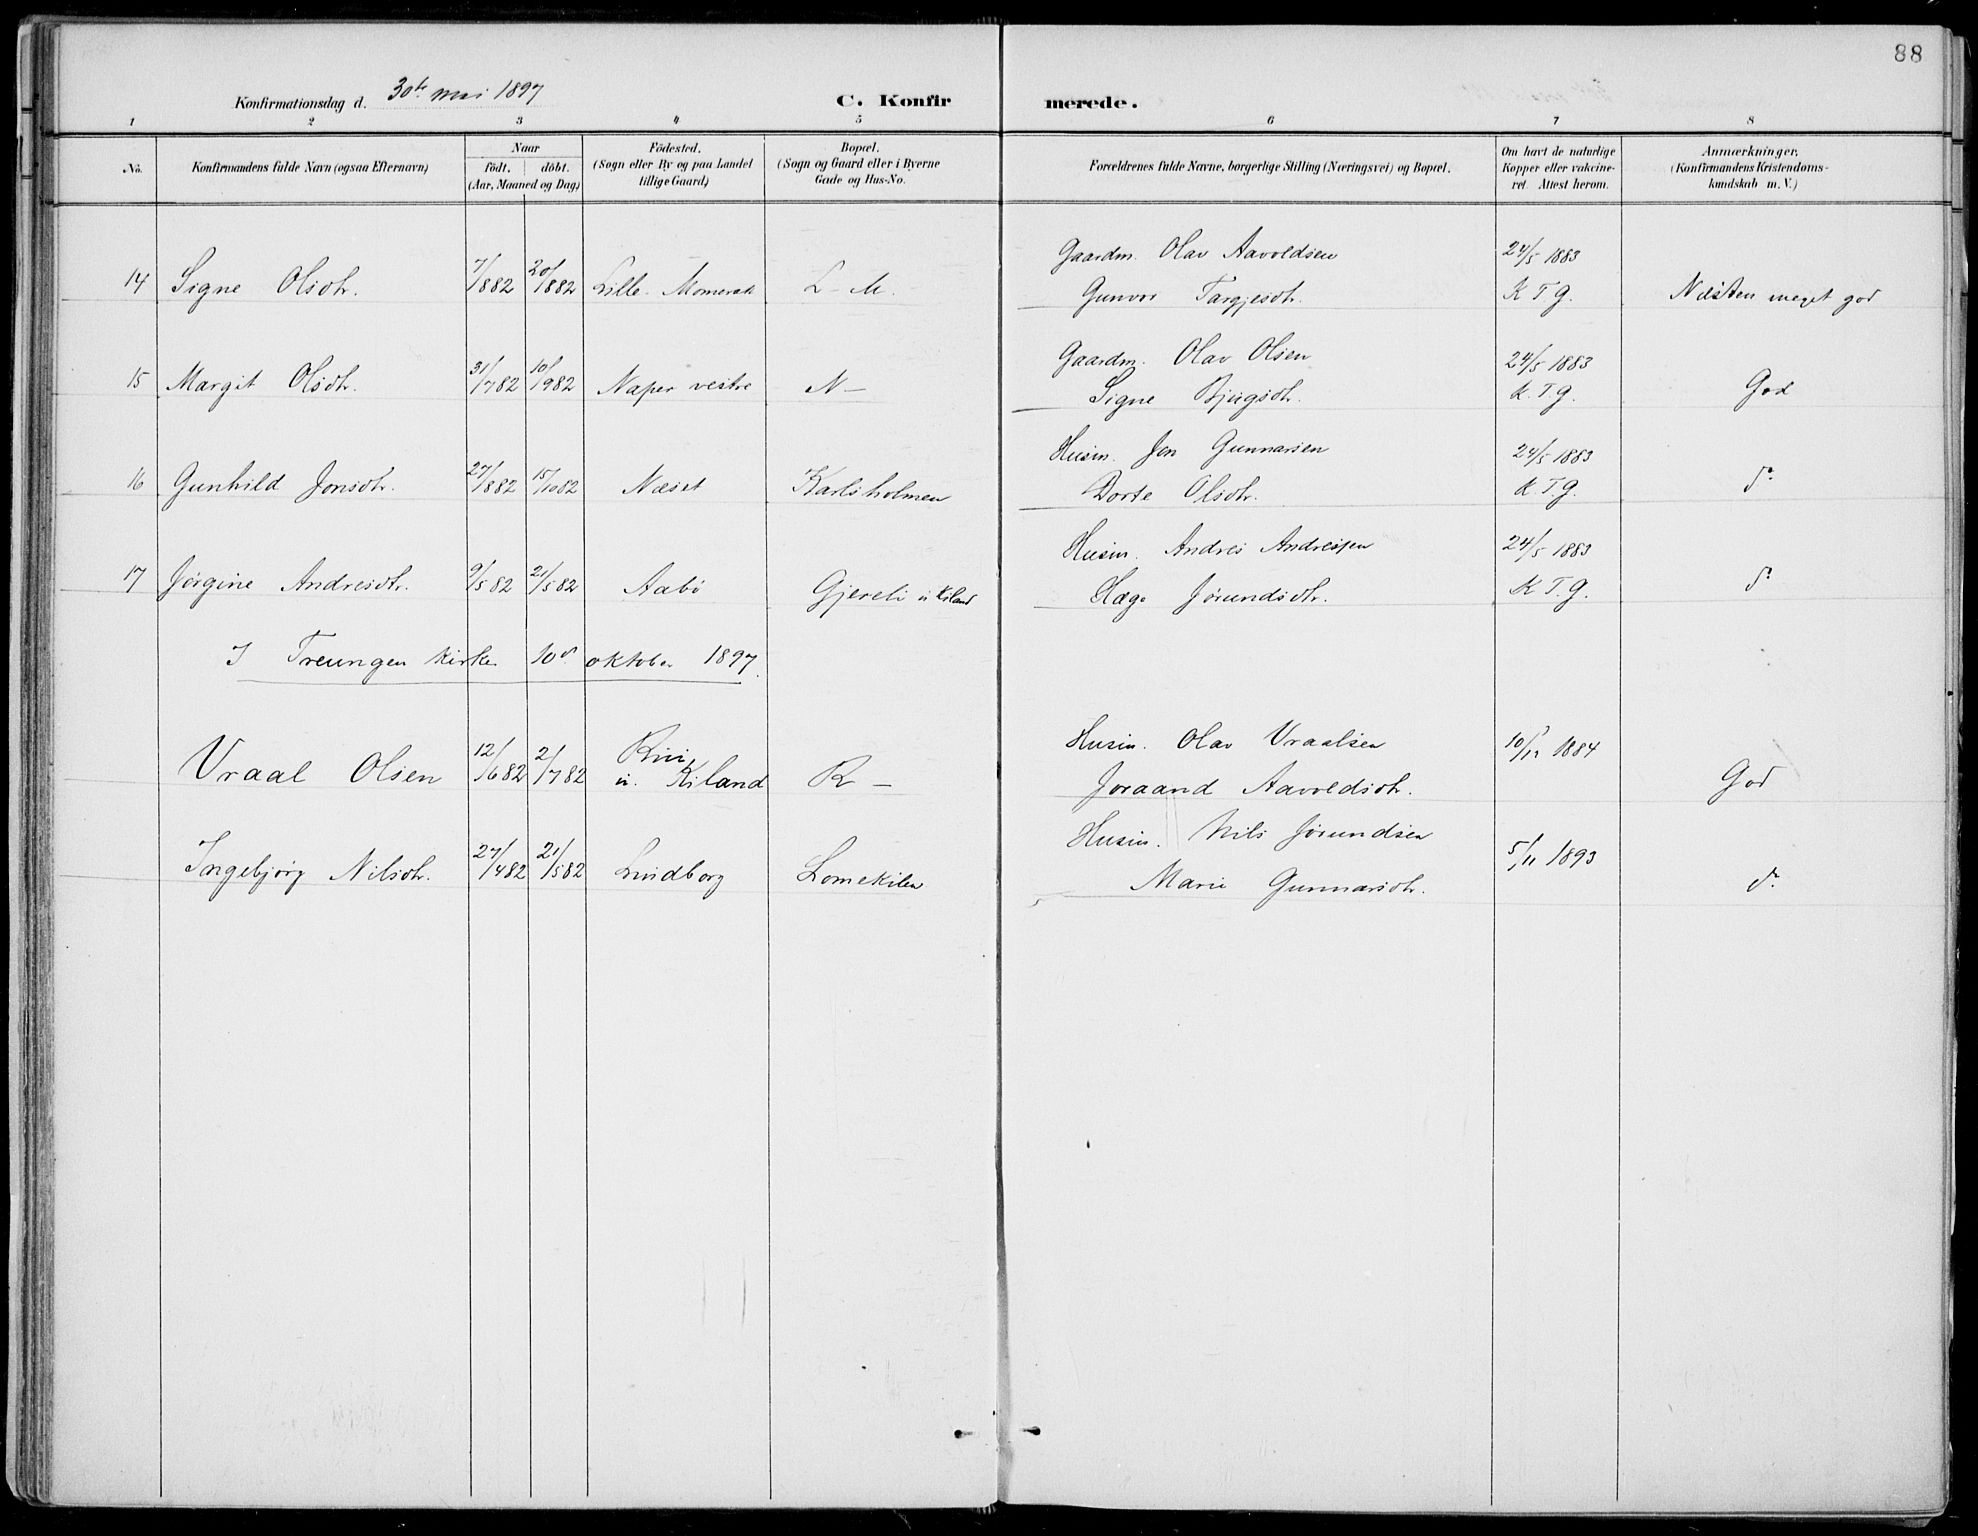 88
Konfirmationsdag d. 30te mai 1897 C. Konfirmerede.
1 2 3 4 5 6 7 8
No. Konfirmandens fulde Navn (ogsaa Efternavn) Naar födt. döbt. (Aar, Maaned og Dag) Födested. (Sogn eller By og paa Landet tillige Gaard) Bopæl. (Sogn og Gaard eller i Byerne Gade og Hus-No. Forældrenes fulde Navne, borgerlige Stilling (Næringsvei) og Bopæl. Om havt de naturlige Kopper eller vakcineret. Attest herom. Anmærkninger. (Konfirmandens Kristendomskundskab m. V.)
Gaardm. Olav Aavoldsen 24/5 1883
14 Signe Olsdtr. 7/1882 20/1882 Lille-Momerak L- M. Gunvor Targjesdtr. K T. G. Næsten meget god
Gaardm. Olav Olsen 24/5 1883
15 Margit Olsdtr. 31/782 10/982 Naper vestre N — Signe Bjugsdtr. K. T. G. God
Husm. Jon Gunnarsen 24/5 1883
16 Gunhild Jonsdtr. 27/882 15/1082 Næset Karlsholmen Dorte Olsdtr. K T. G. do
Husm. Andres Andresen 24/5 1883
17 Jørgine Andresdtr. 9/582 21/582 Aabø Gjereli u Kiland Hæge Jørundsdtr. K T. G. do
I Treungen kirke 10d oktober 1897.
Husm. Olav Vraalsen 10/12 1884
Vraal Olsen 12/682 2/782 Rui, u. Kiland R — Joraand Aavoldsdtr. God
Husm. Nils Jørundsen 5/11 1893
Ingebjørg Nilsdtr. 27/482 21/582 Lindborg Lomekilen Marie Gunnarsdtr. do